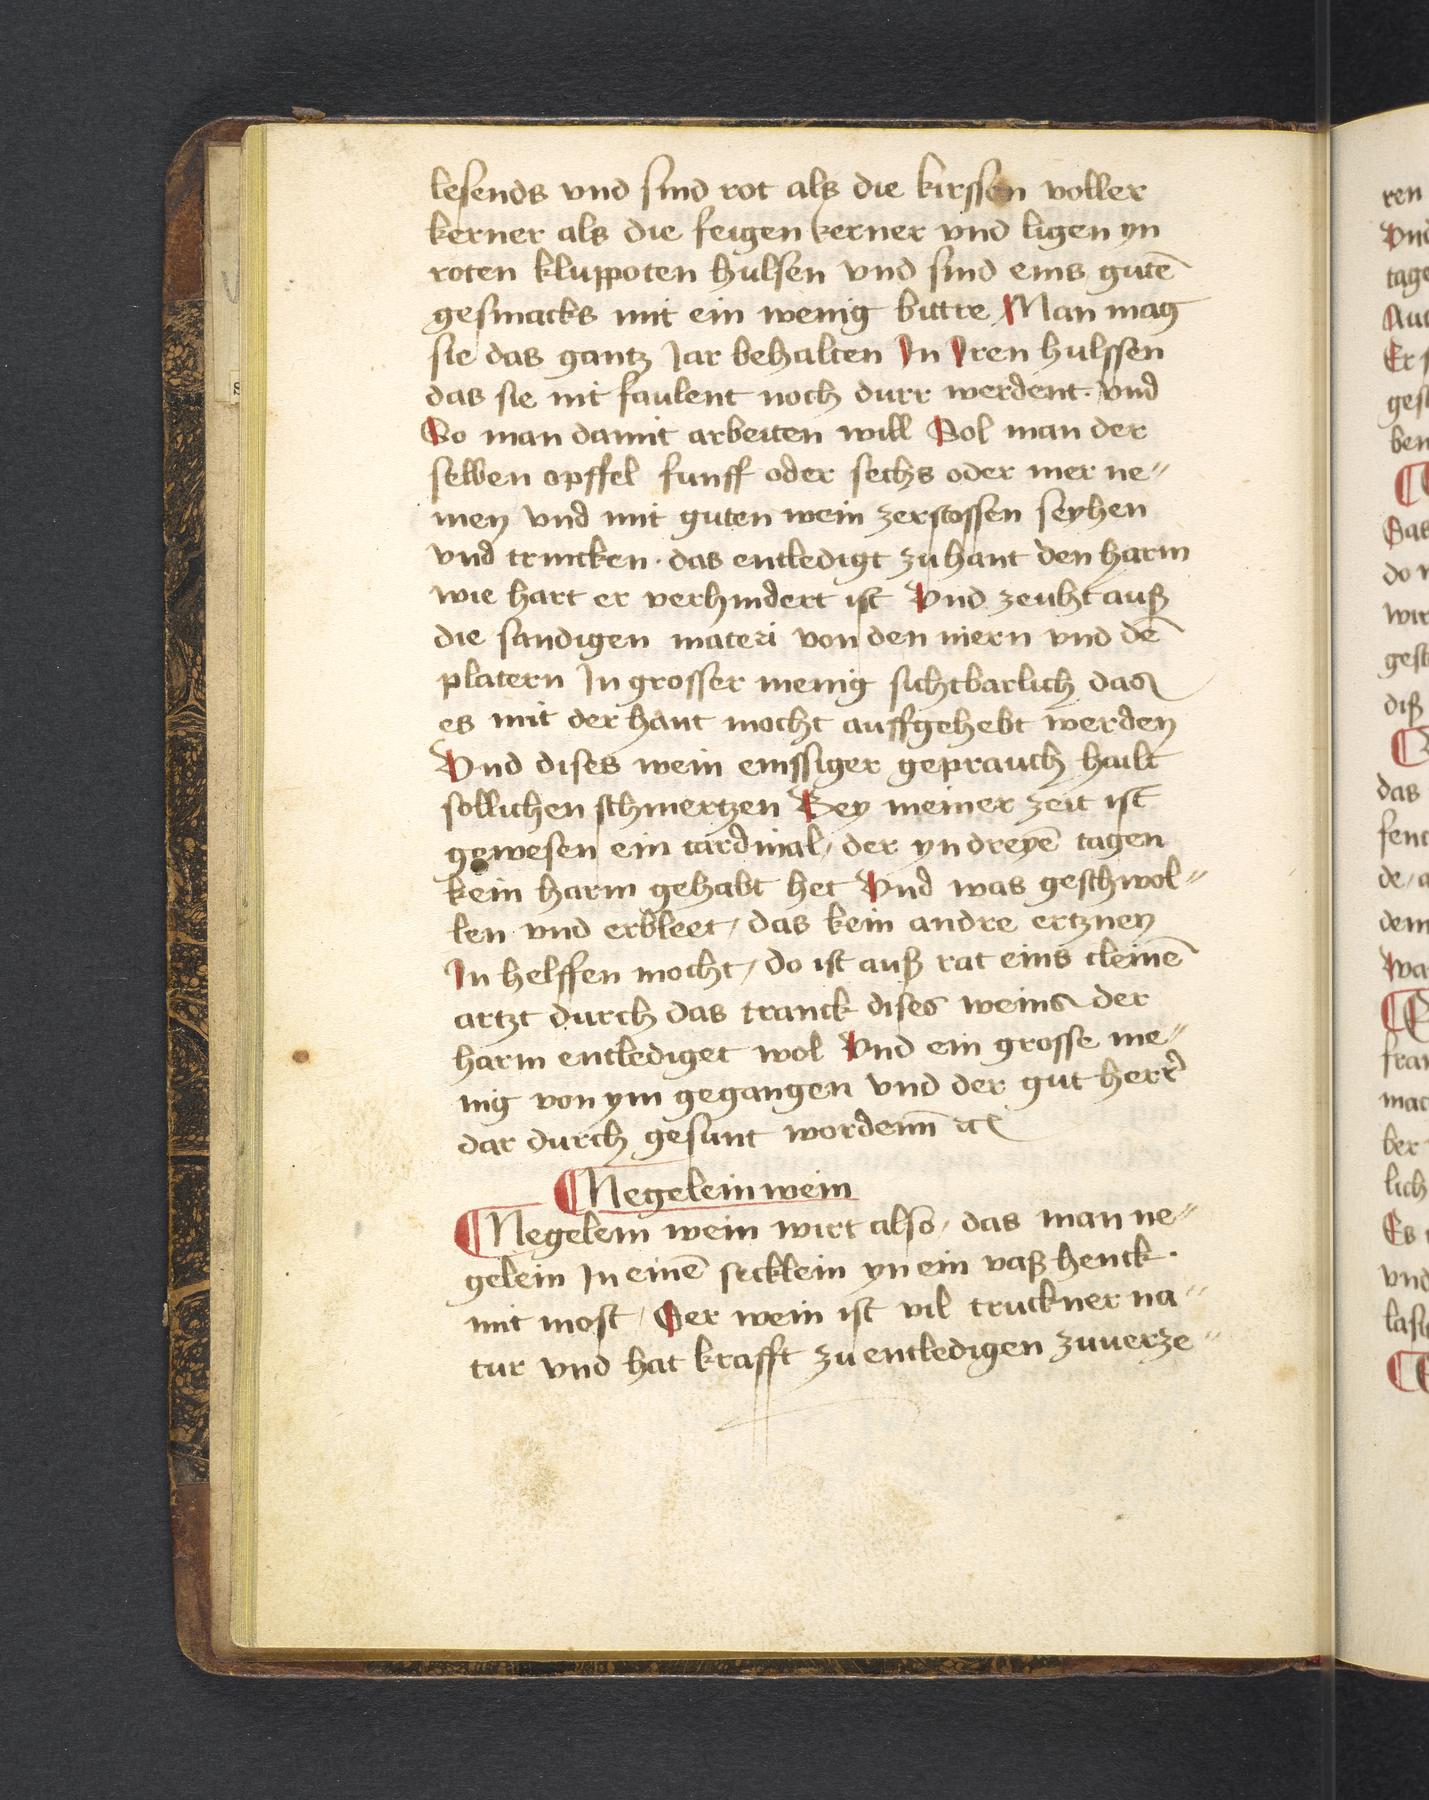 lesends vnd sind rot als die kirssen voller
kerner als die feigen kerner vnd ligen yn
roten kluppoten hulsen vnd sind eins gutē
gesmacks mit ein wenig bittre Man mag
sie das gantz Jar behalten In Iren hulssen
das sie nit faulent noch durr werdent. vnd
So man damit arbeiten will Sol man der
selben opffel funff oder sechs oder mer ne〃
men vnd mit guten wein zerstossen seyhen
vnd trincken · das entledigt zu hant den harm
wie hart er verhindert ist Vnd zeuht auß
die sandigen materi von den niern vnd dē
platern In grosser menig sichtbarlich das
es mit der hant mocht auffgehebt werden
Vnd dises wein emssiger geprauch hailt
sollichen schmertzen Bey meiner zeit ist
gewesen ein cardinal / der yn dreyē tagen
kein harm gehabt het Vnd was geschwol〃
len vnd erbleet / das kein andre ertzney
In helffen mocht / do ist auß rat eins cleinē
artzt durch das tranck dises weins der
harm entlediget wol Vnd ein grosse me〃
nig von ym gegangen vnd der gut herr
dar durch gesunt wordenn̄ ꝛc
¶ Negelein wein
¶ Negelein wein wirt also / das man ne〃
gelein In einē secklein yn ein vaß henck ·
mit most / Der wein ist vil truckner na〃
tur vnd hat krafft zu entledigen zuuerze〃